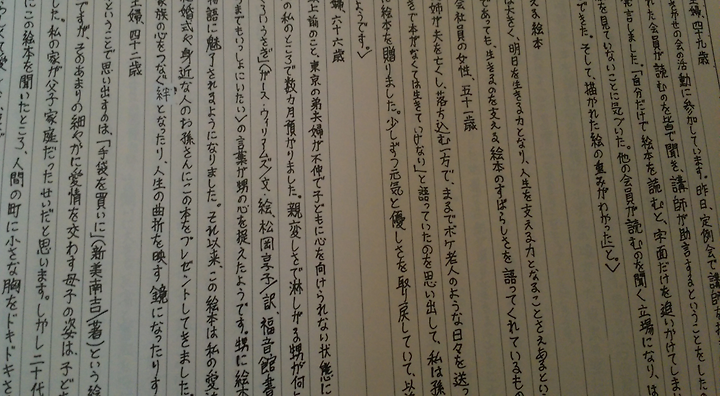 主婦、四十九歳
かせの会の活動に参加しています。昨日、定例会で講師を
れた会員が読むのを皆で聞き、講師が助言するということをしたの
発言しました。「自分だけで絵本を読むと、字面だけを追いかけてしまい
を見ていないことに気づいた。他の会員が読むのを聞く立場になり、は
できた。そして、描かれた絵の重みがわかった」と。〉
える絵本
は大きく、明日を生きる力となり、人生を支える力となることさえあるとい
であっても、生きるのを支える絵本のすばらしさを語ってくれているもの
会社員の女性、五十一歳
姉が夫を亡くし、落ち込む一方で、まるでボケ老人のような日々を送っ
で本がなくては生きていけない」と語っていたのを思い出して、私は孫
に絵本を贈りました。少しずつ元気と優しさを取り戻していて、以
ようです。〉
主婦、六十六歳
上前のこと、東京の弟夫婦が不仲で子どもに心を向けられない状態に
の私のところで数カ月預かりました。親恋しさで淋しがる甥が何よ
ろいうさぎ』(ガース・ウィリアムズ/文・絵、松岡享子/訳、福音館書
までもいっしょにいたい〉の言葉が甥の心を捉えたようです。甥に絵本
物語に魅了されるようになりました。それ以来、この絵本は私の愛読
結婚式や身近な人のお孫さんにこの本をプレゼントしてきました。
家族の心をつなぐ絆となったり、人生の曲折を映す鏡になったりす
主婦、四十二歳
ということで思い出すのは、「手袋を買いに」(新美南吉/著)という絵
ですが、そのあまりの細やかに愛情を交わす母子の姿は、子ども
した。私の家が父子家庭だったせいだと思います。しかし二十代
にこの絵本を開いたところ、人間の町に小さな胸をドキドキさ